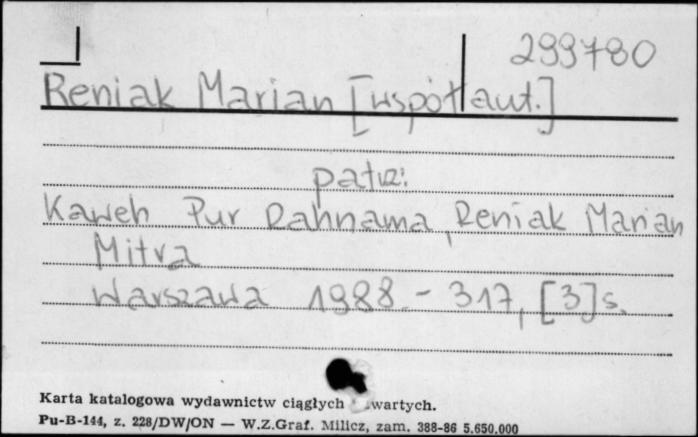 299780
Reniak Marian [współaut.]
patrz:
Kaweh Pur Rahnama, Reniak Marian
Mitra
Warszawa 1988. - 317, [3] s.
Karta katalogowa wydawnictw ciągłych wartych.
Pu-B-144, z. 228/DW/ON — W.Z.Graf. Milicz, zam. 388-86 5.650.000